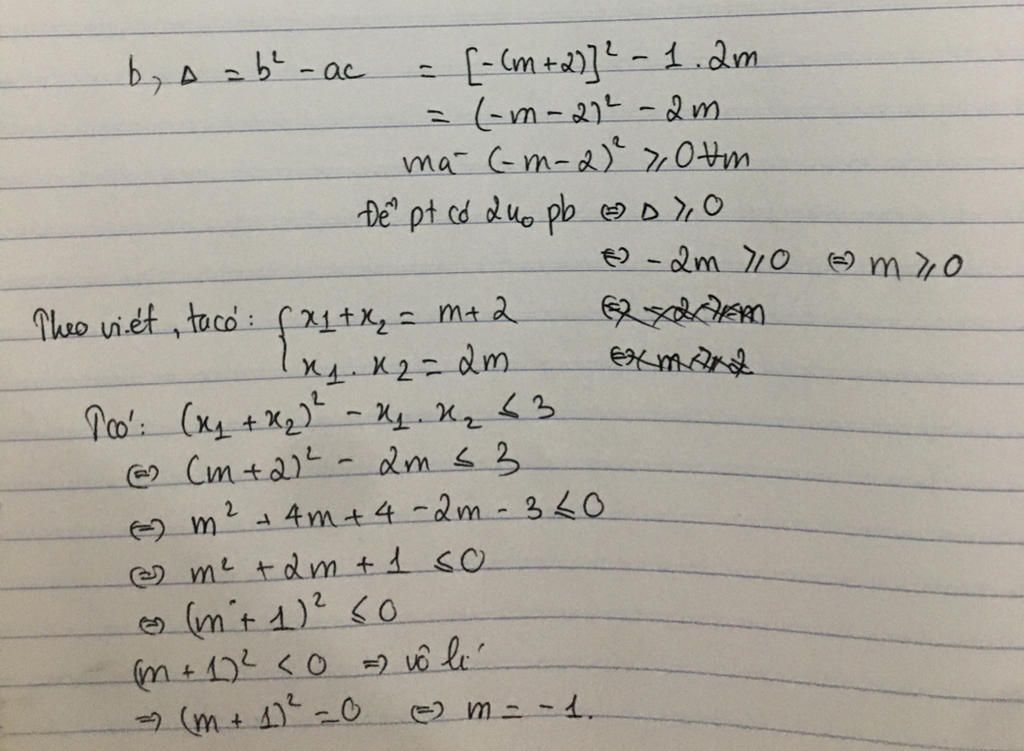 b, Δ = b² - ac = [-(m+2)]² - 1.2m
= (-m-2)² - 2m
mà (-m-2)² ≥ 0 ∀m
Để pt có 2n₀ pb ⇔ Δ ≥ 0
⇔ -2m ≥ 0 ⇔ m ≥ 0
Theo vi-ét, ta có: { x₁+x₂ = m+2
x₁ . x₂ = 2m
Tcó: (x₁+x₂)² - x₁.x₂ ≤ 3
⇔ (m+2)² - 2m ≤ 3
⇔ m² + 4m + 4 - 2m - 3 ≤ 0
⇔ m² + 2m + 1 ≤ 0
⇔ (m+1)² ≤ 0
(m+1)² < 0 ⇒ vô lí
⇒ (m+1)² = 0 ⇔ m = -1.